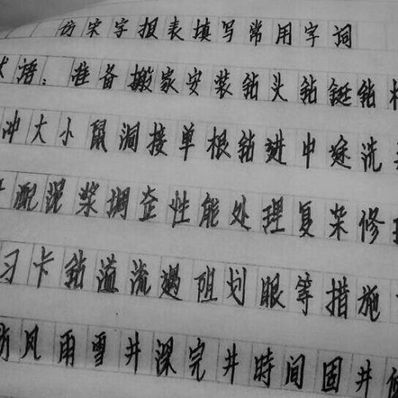 仿宋字报表填写常用字词
术语：准备搬家安装钻头钻铤钻
冲大小鼠洞接单根钻进中途洗
配泥浆调整性能处理复杂修
习卡钻溢流遇阻划眼等措施
防风雨雪井深完井時间固井